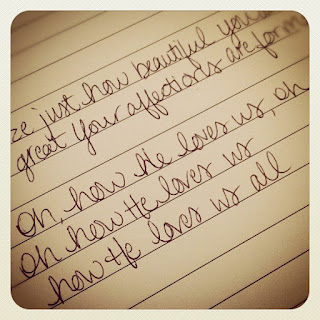 ze just how beautiful you
great Your affections are for m
Oh, how He loves us, oh
oh how He loves us
how He loves us all